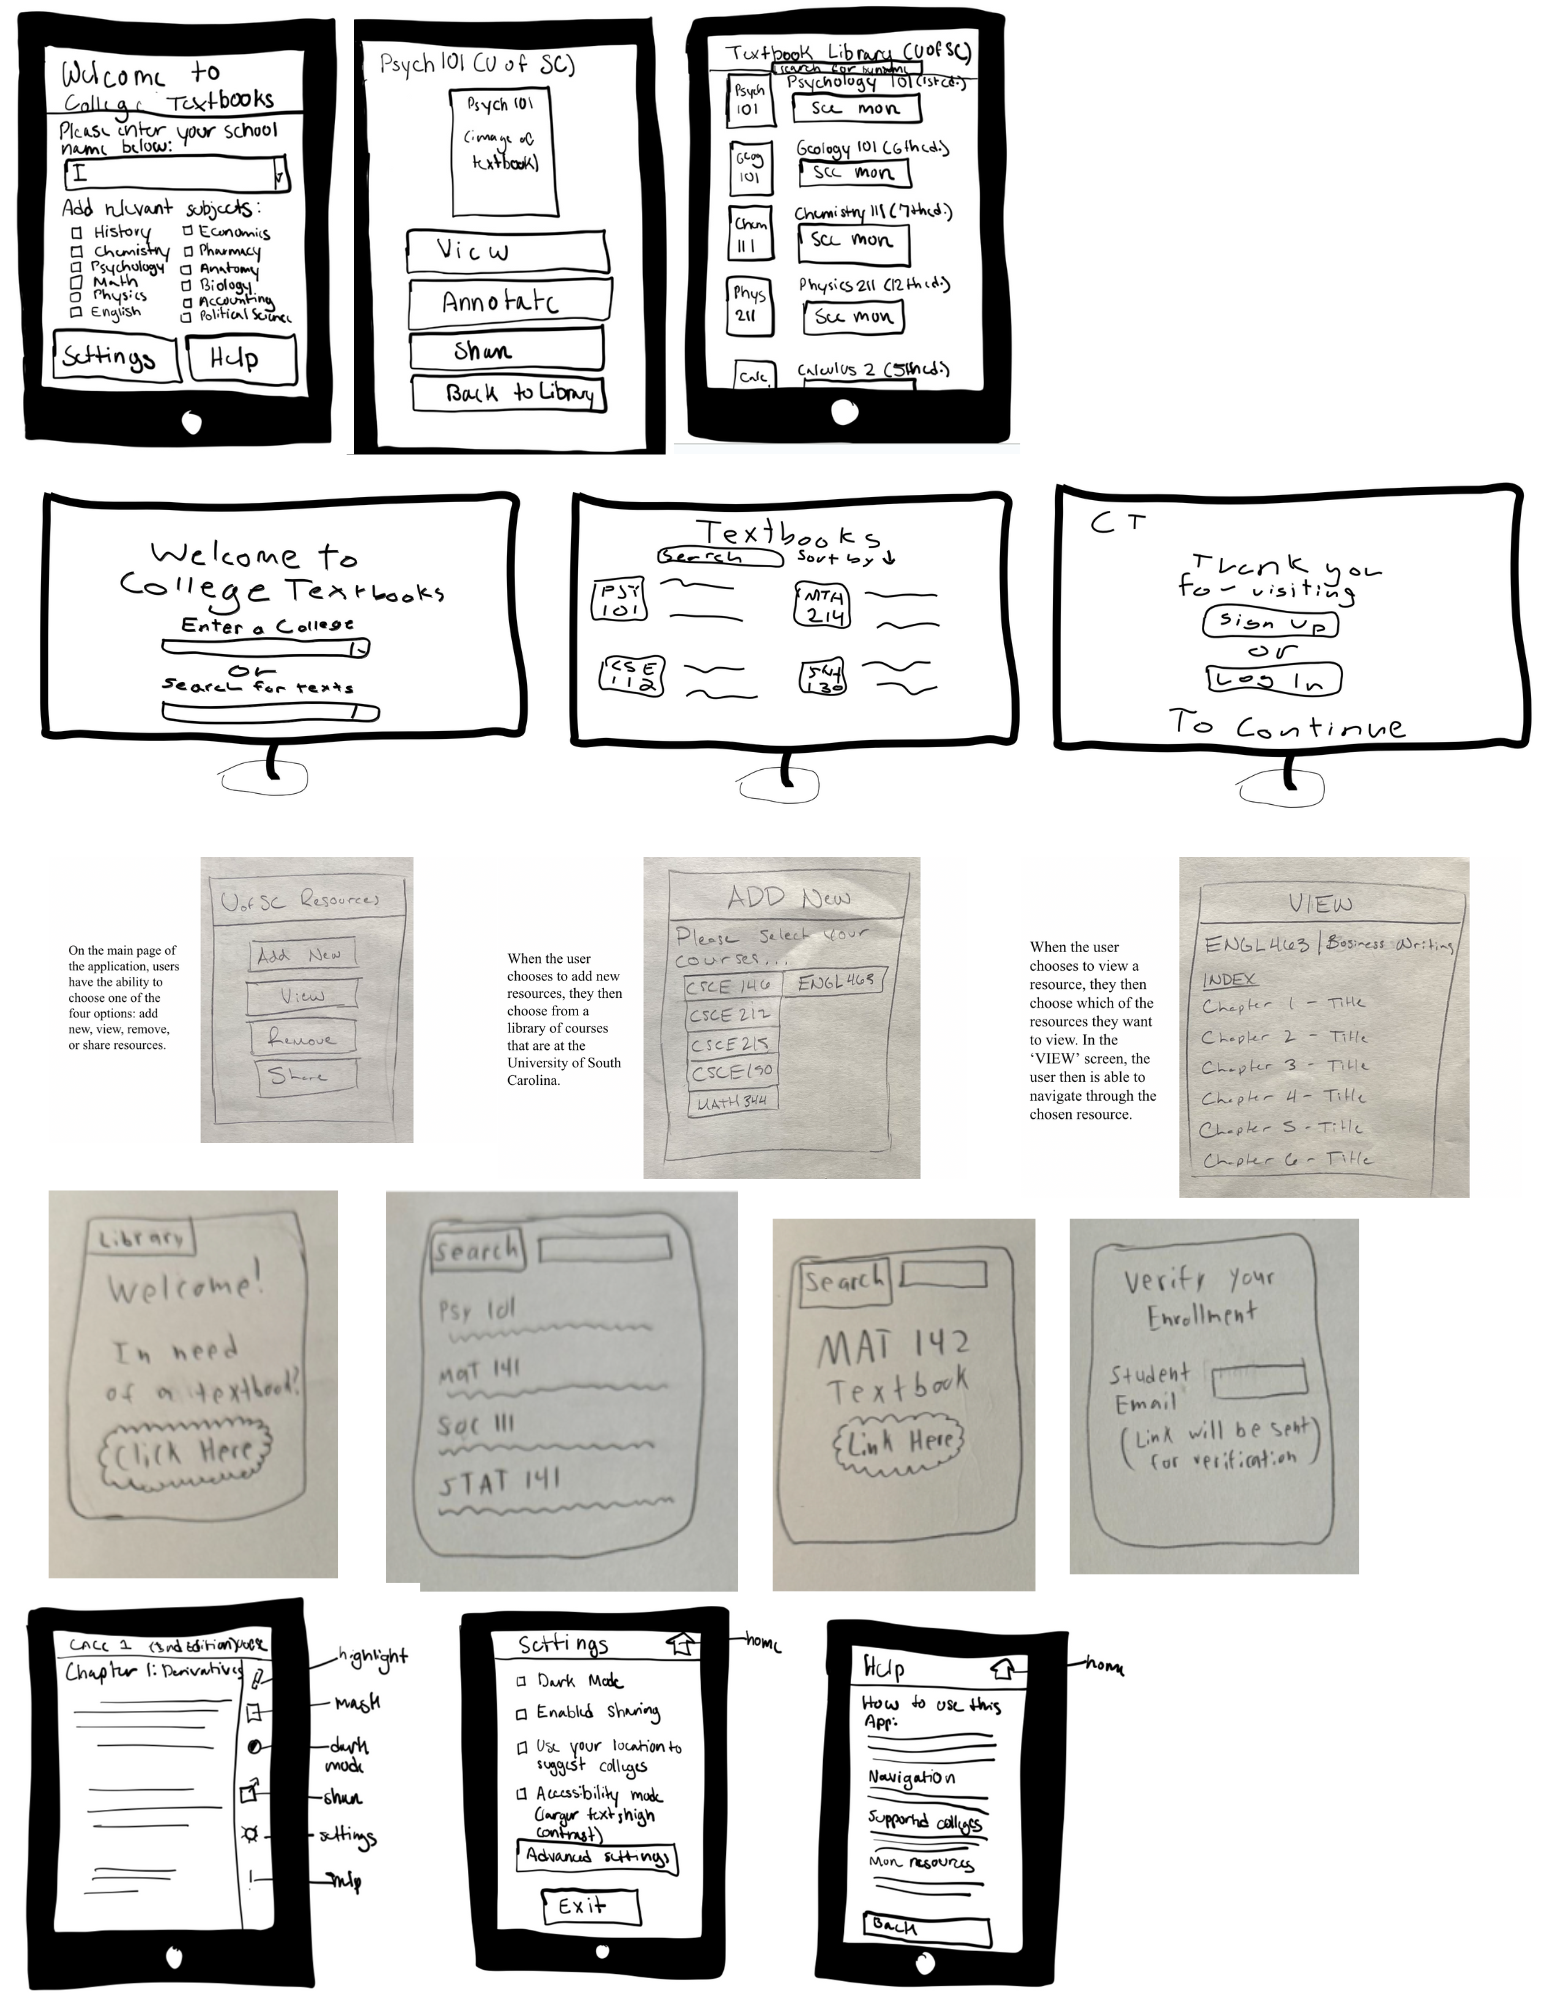 Welcome to
College Textbooks
Please enter your school
name below:
I
Add relevant subjects:
History
Chemistry
Psychology
Math
Physics
English
Economics
Pharmacy
Anatomy
Biology
Accounting
Political Science
Settings
Help
Psych 101 (U of SC)
Psych 101
(image of
textbook)
View
Annotate
Share
Back to Library
Textbook Library (UofSC)
search for by name
Psych
101
Psychology 101 (1st ed.)
See more
Geog
101
Geology 101 (6th ed.)
See more
Chem
111
Chemistry 111 (7th ed.)
See more
Phys
211
Physics 211 (12th ed.)
See more
Calc
Calculus 2 (5th ed.)
Welcome to
College Textbooks
Enter a College
or
Search for texts
Textbooks
Search
Sort by ↓
PSY
101
MTH
214
CSE
112
130
CT
Thank you
for visiting
Sign Up
or
Log In
To Continue
On the main page of
the application, users
have the ability to
choose one of the
four options: add
new, view, remove,
or share resources.
UofSC Resources
Add New
View
Remove
Share
When the user
chooses to add new
resources, they then
choose from a
library of courses
that are at the
University of South
Carolina.
ADD New
Please select your
courses...
CSCE 146
ENGL 463
CSCE 212
CSCE 215
CSCE 190
MATH 344
When the user
chooses to view a
resource, they then
choose which of the
resources they want
to view. In the
‘VIEW’ screen, the
user then is able to
navigate through the
chosen resource.
VIEW
ENGL463 | Business Writing
INDEX
Chapter 1 - Title
Chapter 2 - Title
Chapter 3 - Title
Chapter 4 - Title
Chapter 5 - Title
Chapter 6 - Title
Library
Welcome!
In need
of a textbook?
Click Here
Search
Psy 101
MAT 141
SOC 111
STAT 141
Search
MAT 142
Textbook
Link Here
Verify your
Enrollment
Student
Email
(Link will be sent
for verification)
CALC 1 (3rd Edition) UofSC
Chapter 1: Derivatives
highlight
mask
dark
mode
share
settings
!
help
Settings
home
Dark Mode
Enabled sharing
Use your location to
suggest colleges
Accessibility mode
(larger text, high
contrast)
Advanced settings
Exit
Help
home
How to use this
App:
Navigation
Supported colleges
More resources
Back